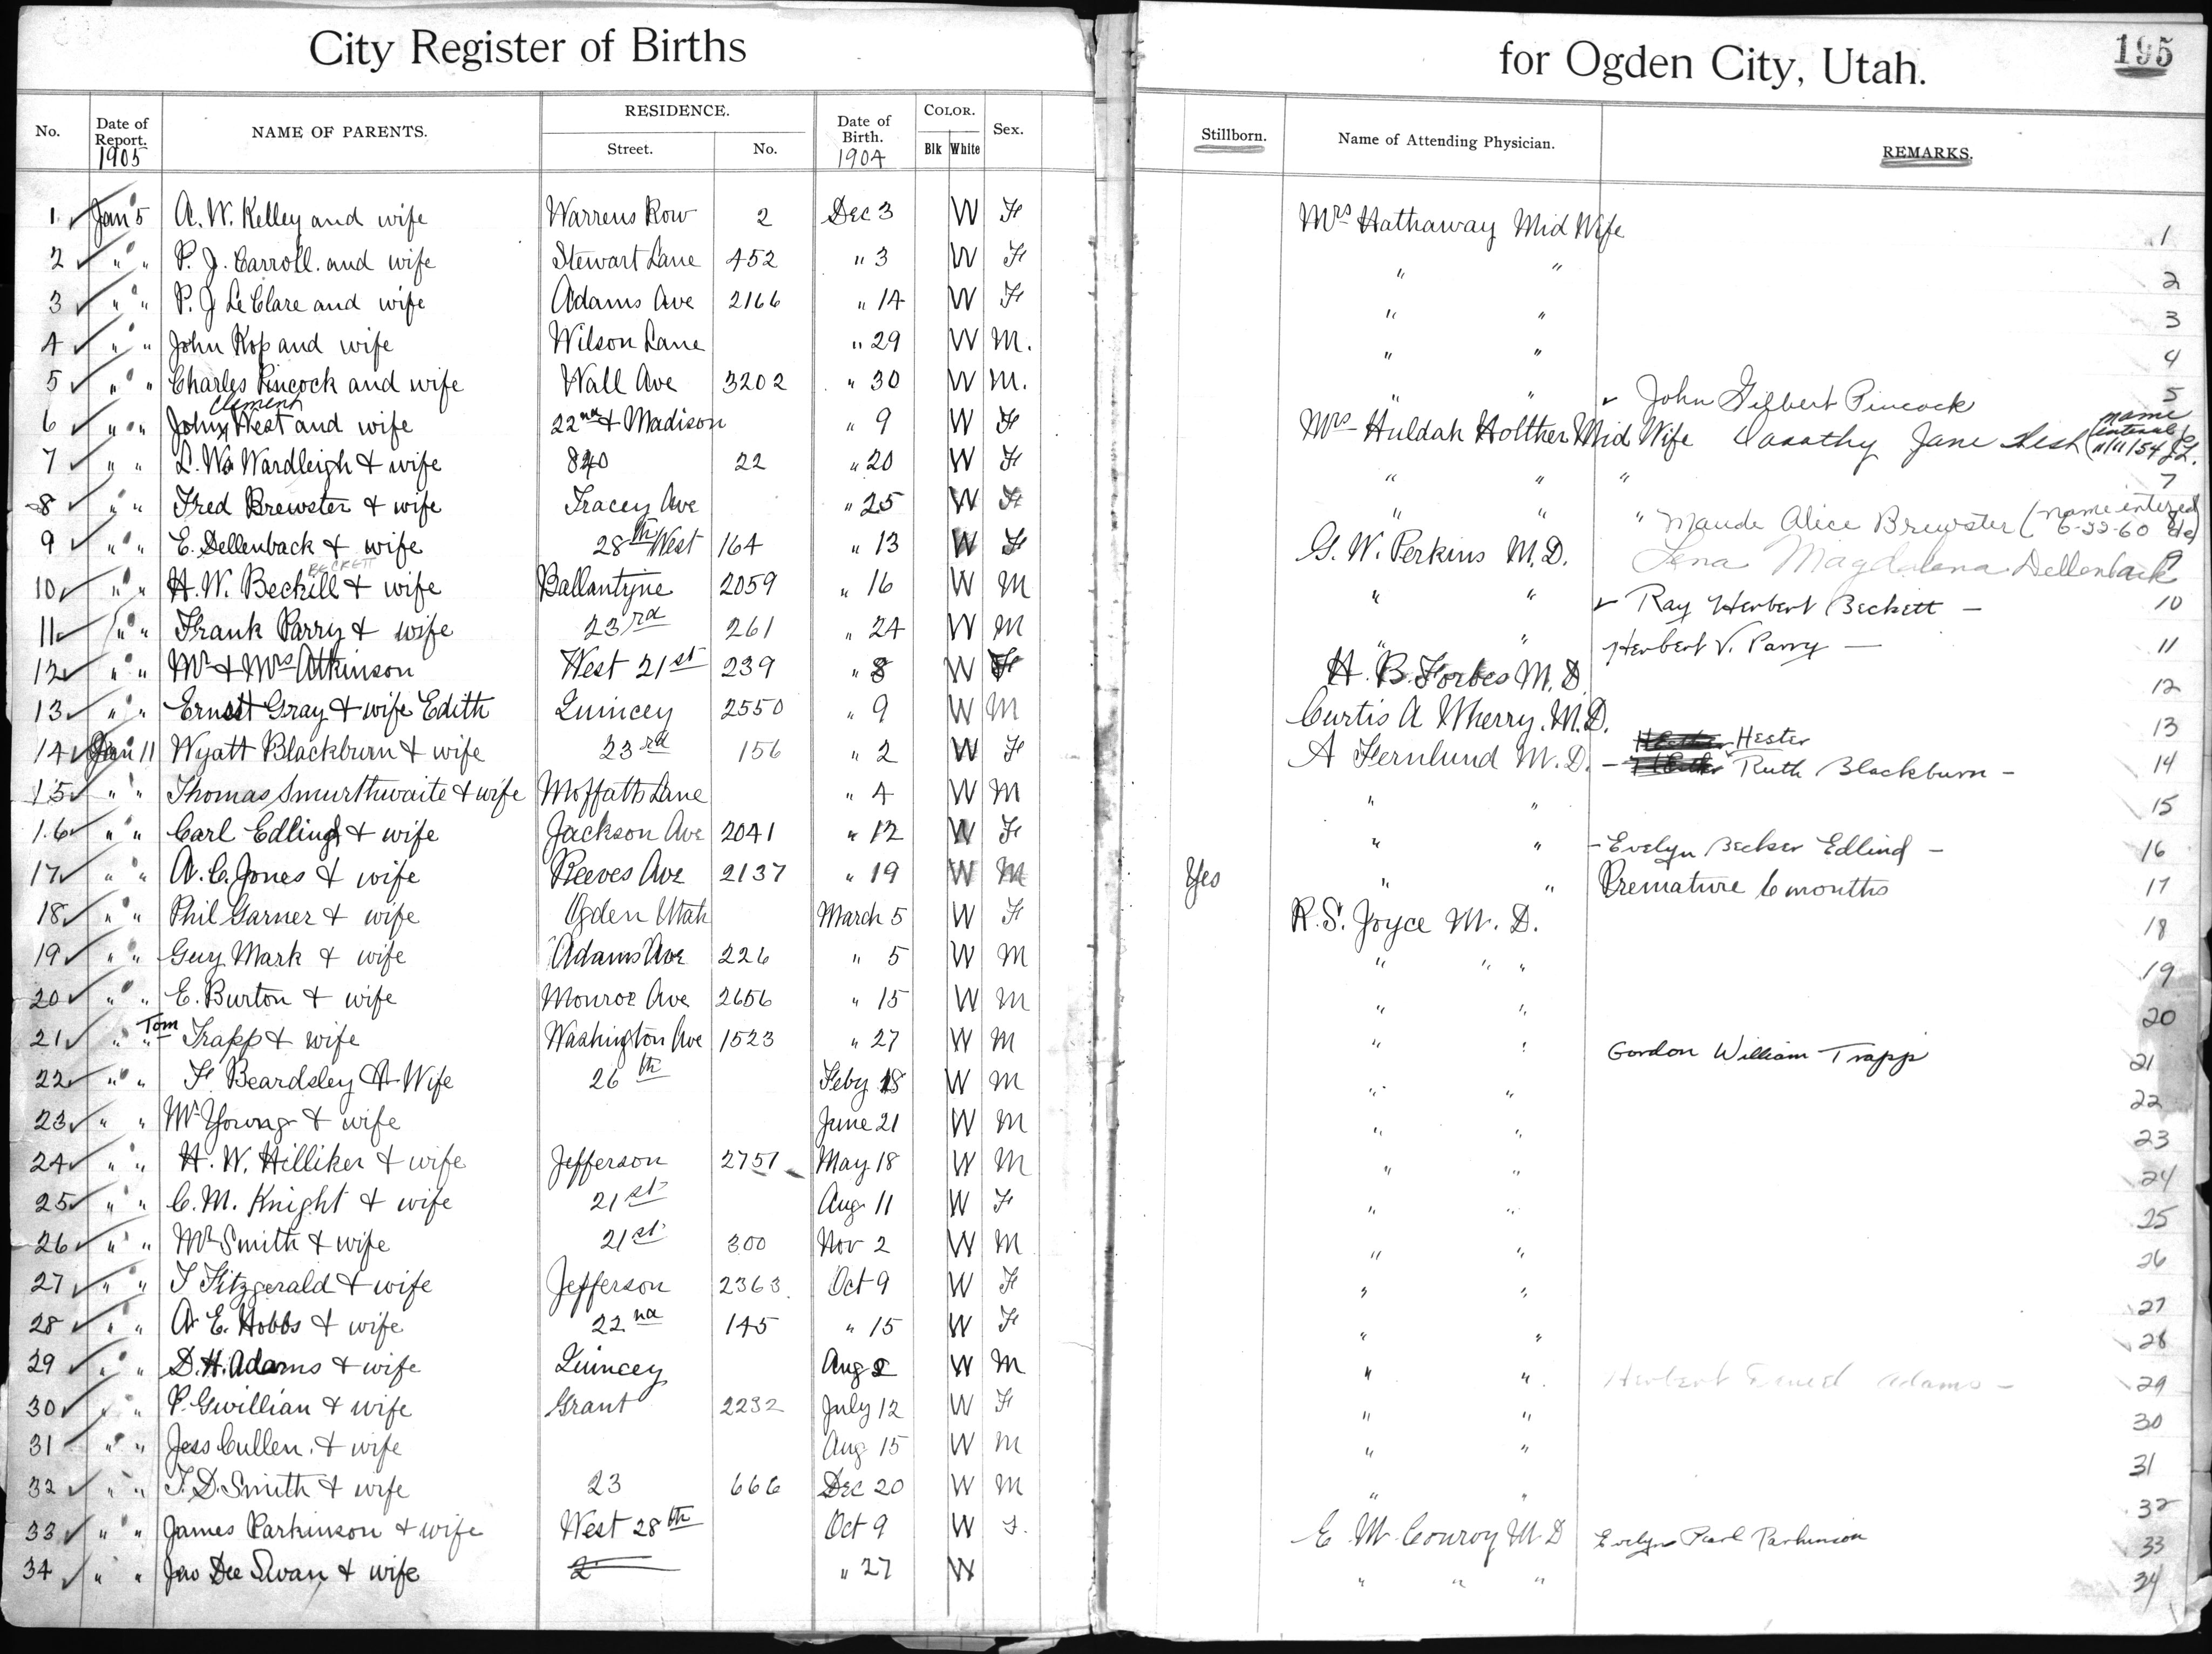 City Register of Births for Ogden City, Utah. 195
No. Date of Report. 1905 NAME OF PARENTS. RESIDENCE. Street. No. Date of Birth. 1904 COLOR. Blk White Sex. Stillborn. Name of Attending Physician. REMARKS.
1 Jan 5 A. W. Kelley and wife Warrens Row 2 Dec 3 W F Mrs Hathaway Mid Wife 1
2 " " P. J. Carroll. and wife Stewart Lane 452 " 3 W F " " 2
3 " " P. J LeClare and wife Adams Ave 2166 " 14 W F " " 3
4 " " John Kop and wife Wilson Lane " 29 W M. " " 4
5 " " Charles Pincock and wife Wall Ave 3202 " 30 W M. " " John Gilbert Pincock 5
6 " " John Clement West and wife 22nd & Madison " 9 W F Mrs Huldah Holther Mid Wife Dorothy Jane West (name entered 1/11/54
7 " " L. W. Wardleigh & wife 840 22 " 20 W F " " " 7
8 " " Fred Brewster & wife Tracey Ave " 25 W F " " " Maude Alice Brewster (name entered 6-22-60
9 " " E. Dellenback & wife 28th West 164 " 13 W F G. W. Perkins M.D. Lena Magdalena Dellenback 9
10 " " H. W. Beckill & wife BECKETT Ballantyne 2059 " 16 W M " " Ray Herbert Beckett - 10
11 " " Frank Parry & wife 23rd 261 " 24 W M " " Herbert V. Parry - 11
12 " " Mr & Mrs Atkinson West 21st 239 " 8 W F H. B. Forbes M. D 12
13 " " Ernest Gray & wife Edith Quincey 2550 " 9 W M Curtis A Wherry. M.D. 13
14 Jan 11 Wyatt Blackburn & wife 23rd 156 " 2 W F A Fernlund M. D. - Hester Ruth Blackburn - 14
15 " " Thomas Smurthwaite & wife Moffatts Lane " 4 W M " " 15
16 " " Carl Edlind & wife Jackson Ave 2041 " 12 W F " " - Evelyn Becker Edlind - 16
17 " " A. C. Jones & wife Reeves Ave 2137 " 19 W M Yes " " Premature 6 months 17
18 " " Phil Garner & wife Ogden Utah March 5 W F R. S. Joyce M. D. 18
19 " " Guy Mark & wife Adams Ave 226 " 5 W M " " " 19
20 " " E. Burton & wife Monroe Ave 2656 " 15 W M " " 20
21 " " Tom Trapp & wife Washington Ave 1523 " 27 W M " " Gordon William Trapp 21
22 " " F Beardsley & Wife 26th Feby 18 W M " " 22
23 " " Mr Young & wife June 21 W M " " 23
24 " " H. W. Hilliker & wife Jefferson 2751 May 18 W M " " 24
25 " " C. M. Knight & wife 21st Aug 11 W F " " 25
26 " " Mr Smith & wife 21st 300 Nov 2 W M " " 26
27 " " T Fitzgerald & wife Jefferson 2363 Oct 9 W F " " 27
28 " " A E. Hobbs & wife 22nd 145 " 15 W F " " 28
29 " " D. H. Adams & wife Quincey Aug 2 W M " " Herbert Adams - 29
30 " " P. Gwillian & wife Grant 2232 July 12 W F " " 30
31 " " Jess Cullen. & wife Aug 15 W M " " 31
32 " " T. D. Smith & wife 23 666 Dec 20 W M " " 32
33 " " James Parkinson & wife West 28th Oct 9 W F. E M. Conroy M.D Evelyn Pearl Parkinson 33
34 " " Jno Dee Swan & wife 2 " 27 W " " " 34